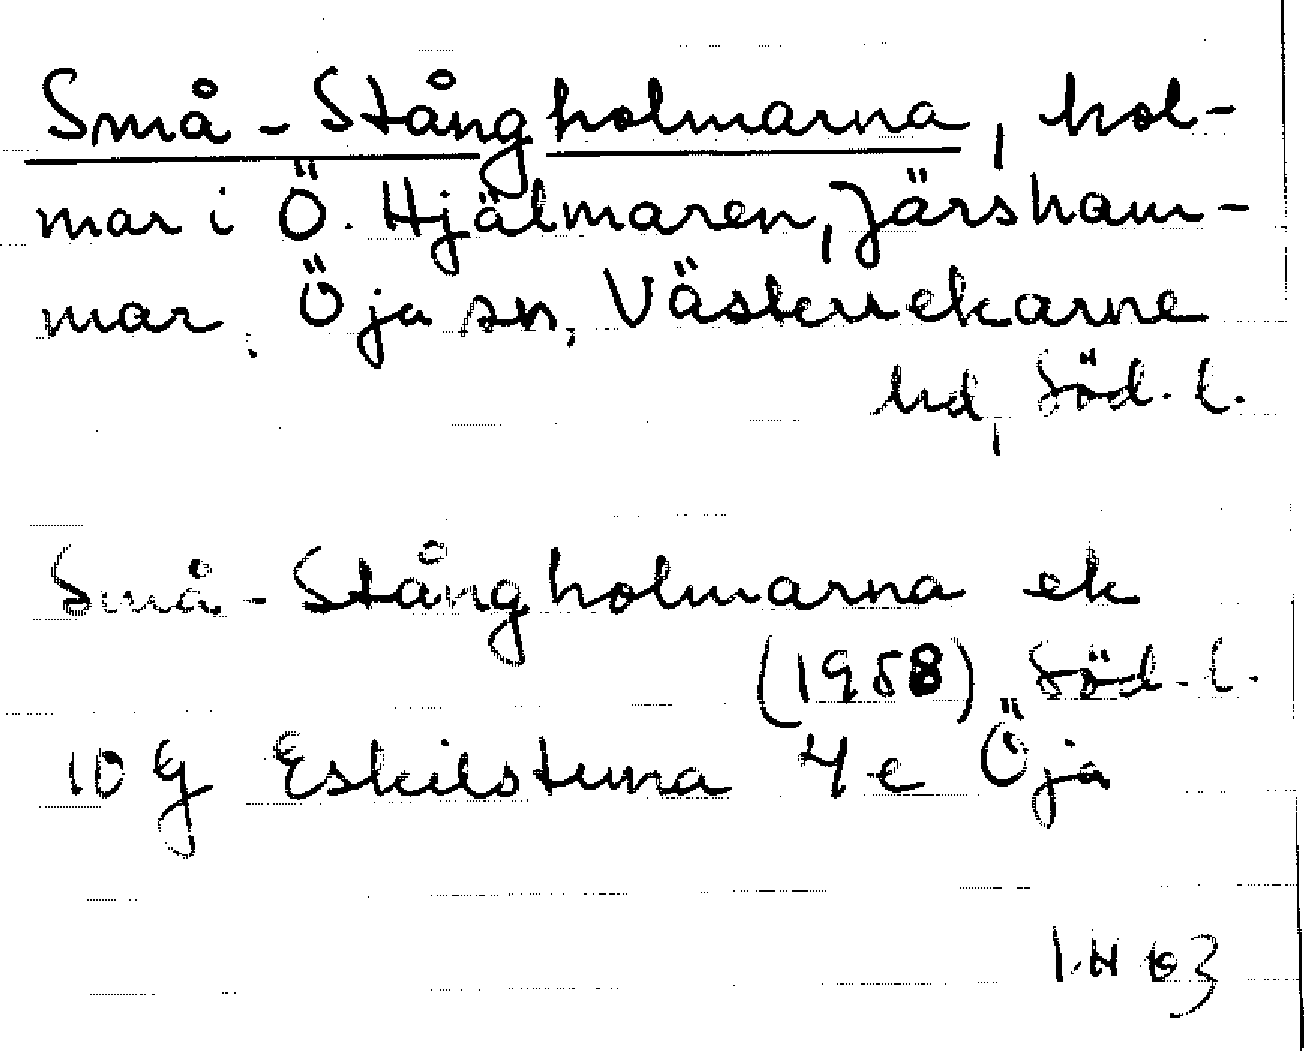 Små-Stångholmarna, hol-
mar i Ö. Hjälmaren, Järsham-
mar, Öja sn, Västerrekarne
hd, Söd. l.
Små-Stångholmarna ek
(1958) Söd. l.
10 g Eskilstuna 4 e Öja
I.H 63